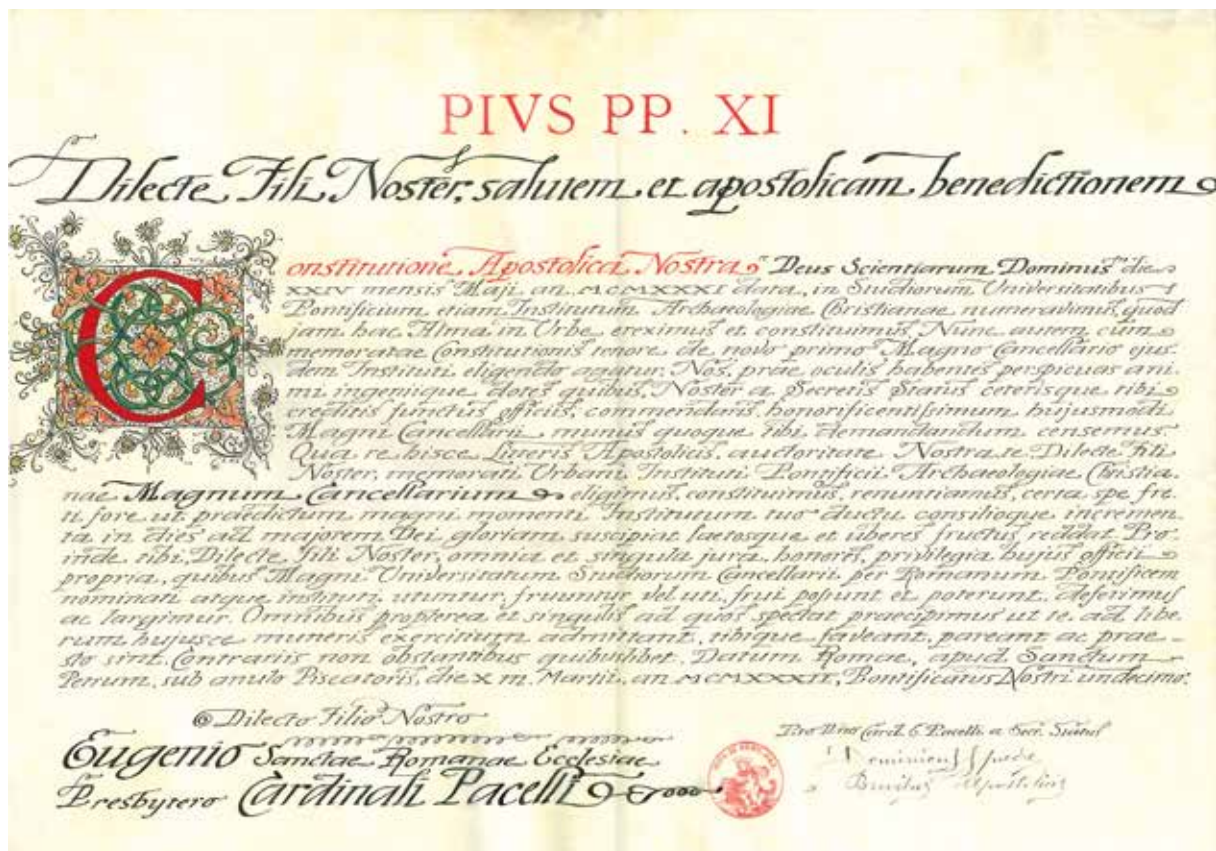 PIVS PP. XI
Dilecte Fili Noster, salutem et apostolicam benedictionem
Constitutione Apostolica Nostra "Deus Scientiarum Dominus" die
XXIV mensis Maji an. MCMXXXI data, in Studiorum Universitatibus
Pontificium etiam Institutum Archaeologiae Christianae numeravimus, quod
jam hac Alma in Urbe ereximus et constituimus. Nunc autem cum
memoratae Constitutionis tenore de novo primo Magno Cancellario ejus-
dem Instituti eligendo agatur, Nos, prae oculis habentes perspicuas ani-
mi ingeniique dotes quibus, Noster a Secretis Status ceterisque tibi
creditis functus officiis, commendaris, honorificentissimum hujusmodi
Magni Cancellarii munus quoque tibi demandandum censemus.
Qua re hisce Litteris Apostolicis, auctoritate Nostra te Dilecte Fili
Noster, memorati Urbani Instituti Pontificii Archaeologiae Christia-
nae Magnum Cancellarium eligimus, constituimus, renuntiamus, certa spe fre-
ti fore ut praedictum magni momenti Institutum tuo ductu consilioque incremen-
ta in dies ad majorem Dei gloriam suscipiat laetosque et uberes fructus reddat. Pro-
inde tibi, Dilecte Fili Noster, omnia et singula jura, honores, privilegia hujus officii
propria, quibus Magni Universitatum Studiorum Cancellarii per Romanum Pontificem
nominati atque instituti, utuntur, fruuntur vel uti, frui possunt et poterunt, deferimus
ac largimur. Omnibus propterea et singulis ad quos spectat praecipimus ut te ad libe-
rum hujusce muneris exercitium admittant, tibique faveant, pareant ac prae-
sto sint. Contrariis non obstantibus quibuslibet. Datum Romae, apud Sanctum
Petrum, sub anulo Piscatoris, die X m. Martii, an. MCMXXXII, Pontificatus Nostri undecimo.
Dilecto Filio Nostro
Eugenio Sanctae Romanae Ecclesiae
Presbytero Cardinali Pacelli
Card. E. Pacelli a Secr. Status
Dominicus Spada